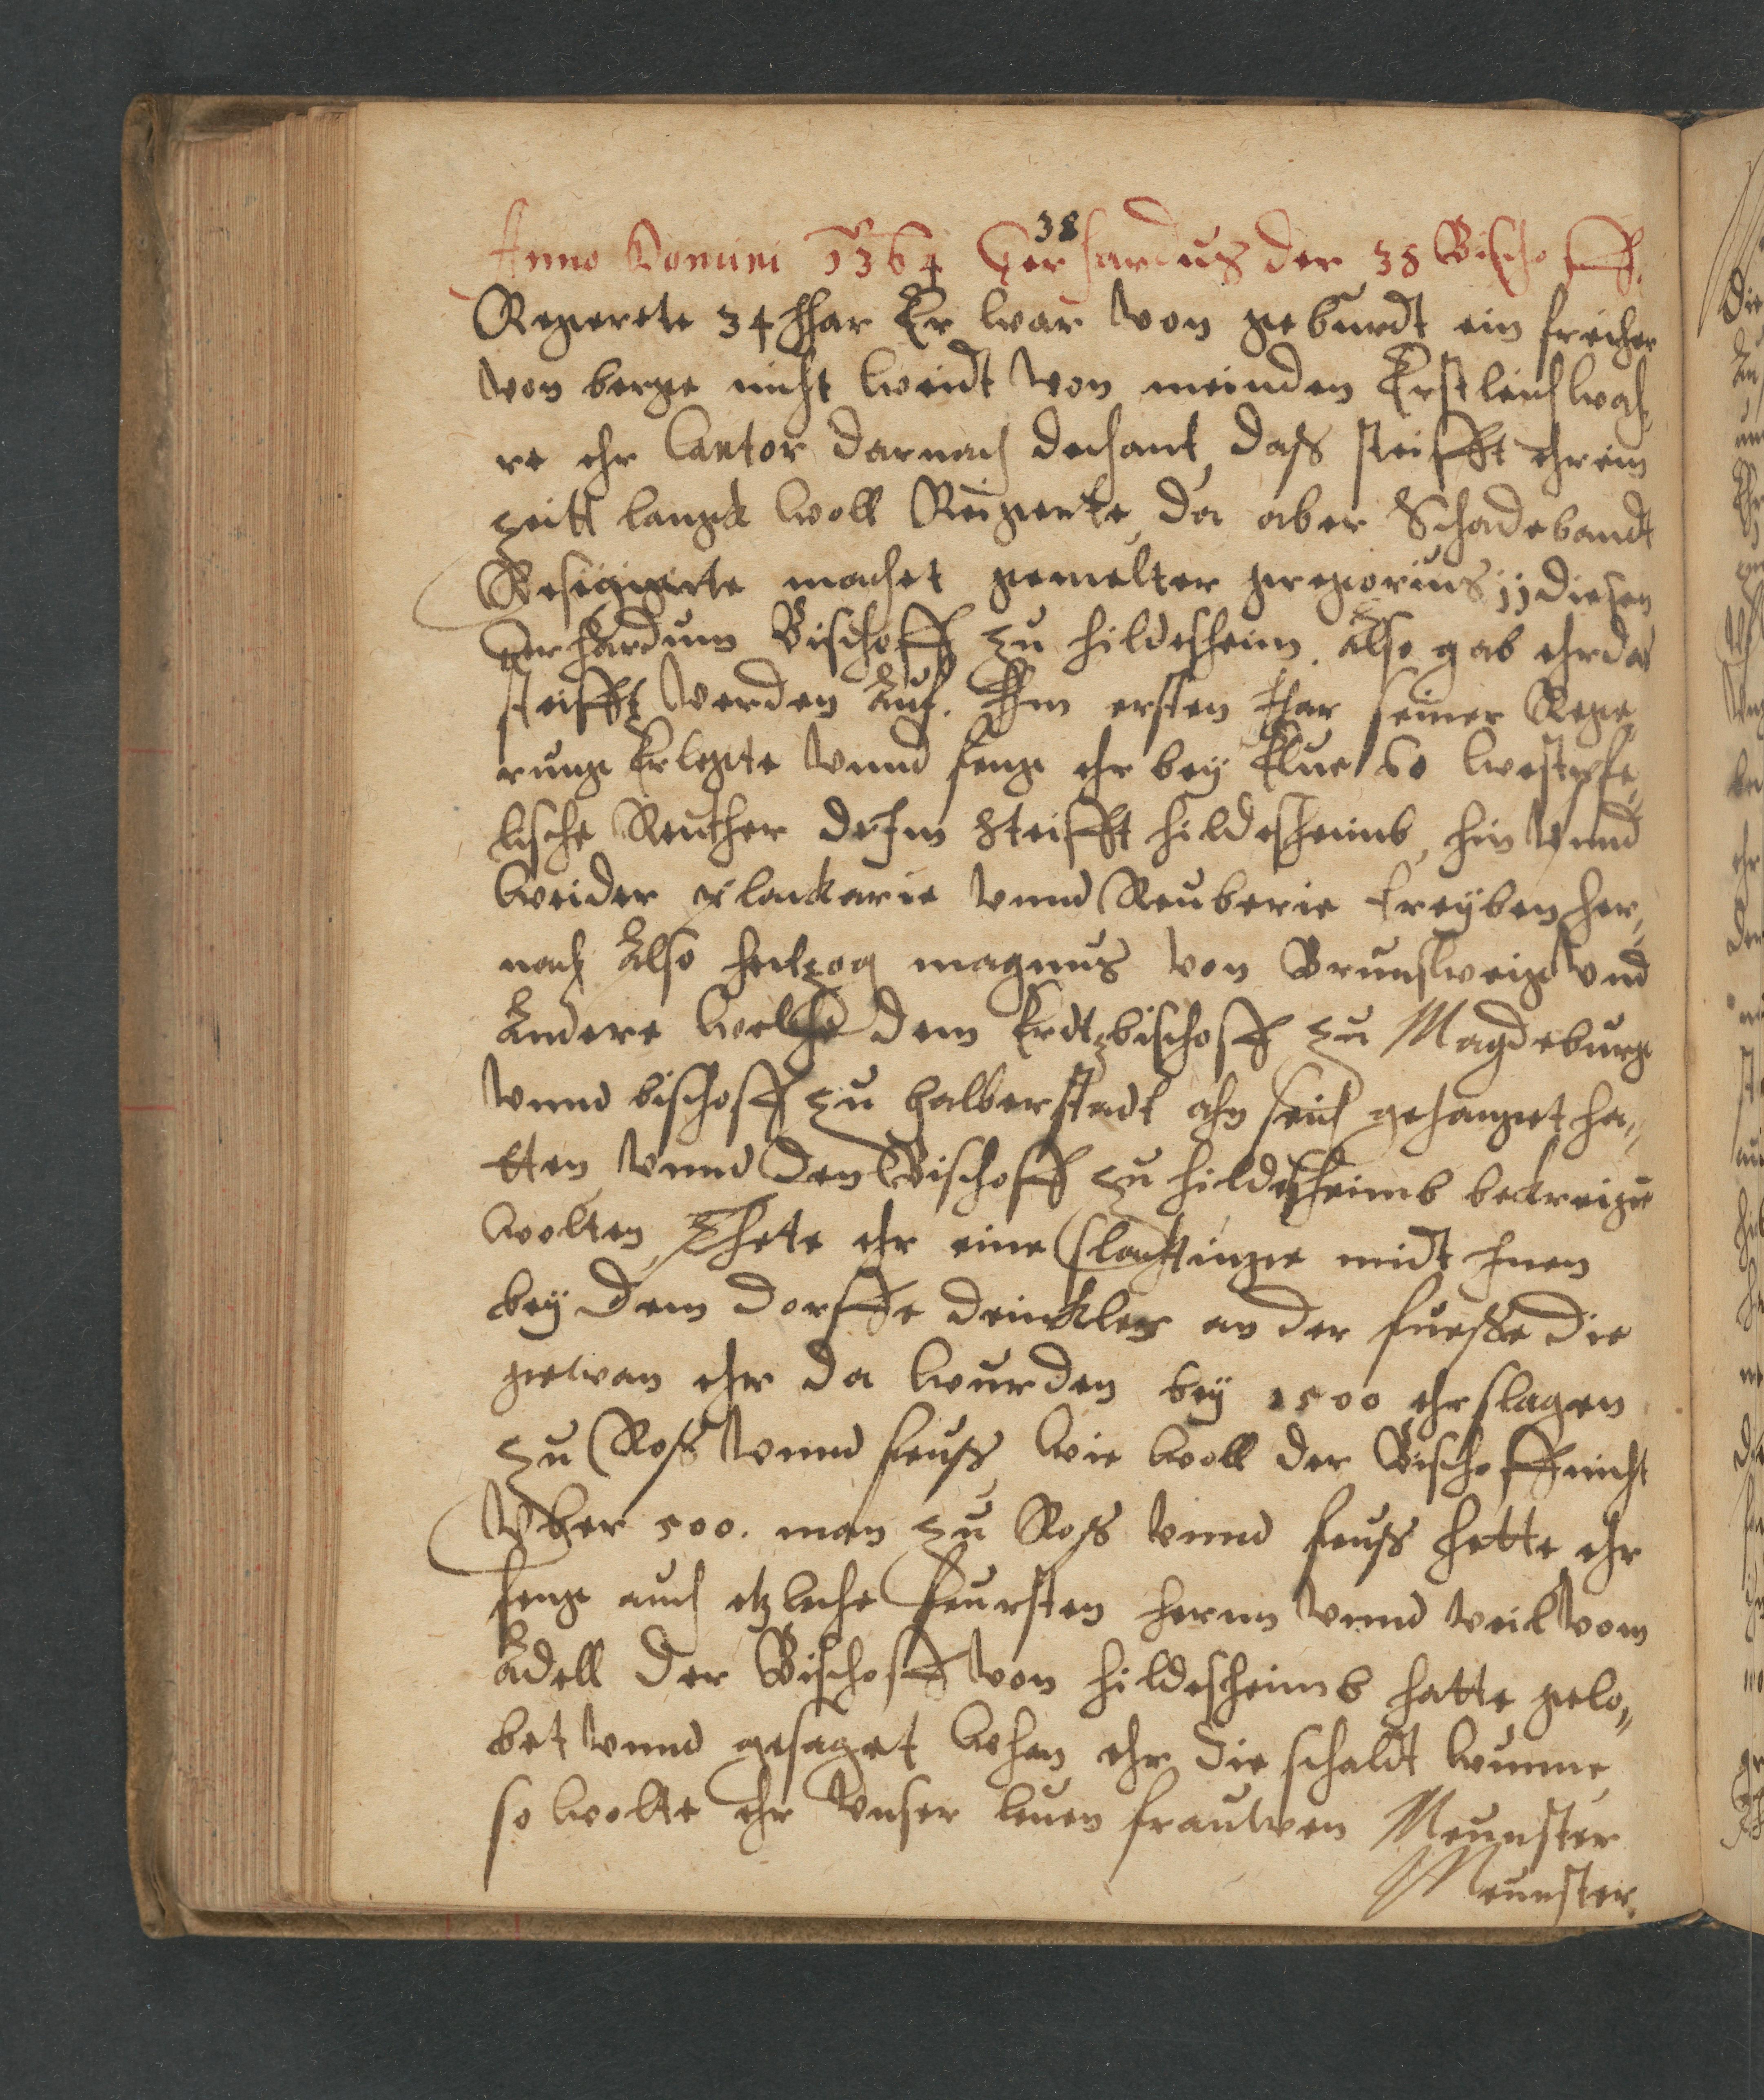 38
Anno Domini 1364 Gerhardus der 38 Bischoff.
Regerete 34 Jhar Er war von geburdt ein freiher
von berge nicht weidt von meinden Erstleich wah,
re ehr Cantor darnach dechant, daß steifft ehr ein
zeitt langck woll Reigerte, da aber Schadebandt
Resignirte machet gemelter gregorius 11 diesen
Gerhardum Bischoff zu hildesheim, also gab ehr das
steifft Verden Auf. Ihm ersten Jhar seiner Rege,
runge Erlegte vnnd fenge ehr bey Elue 60 westpfe,
lische Reuther de Jm Steifft hildesheimb, hin vnnd
weider plackarie vnnd Reuberie treyben her,
nach Also hertzog magnus von Brunsweig vnd
Andere welche dem Erdtzbischoff zu Magdeburge
vnnd bischoff zu halberstadt ahn seich gehanget ha,
tten vnnd den Bischoff zu hildesheimb beckreigen
wolten, Thete ehr eine slachtinge midt ihnen
bey dem dorffe deinckler an der fueße die
gewan ehr da wurden bey 1500 ehrslagen
zu Roß vnnd feuß, wie woll der Bischoff nicht
Vber 500. man zu Roß vnnd feuß hette ehr
fenge auch etzliche Feursten hernn vnnd veil vom
Adell der Bischoff von hildesheimb hatte gelo,
bet vnnd gesaget when ehr die schaldt wunne,
so wolte ehr Vnser leuen frauwen Meunster
Meunster.